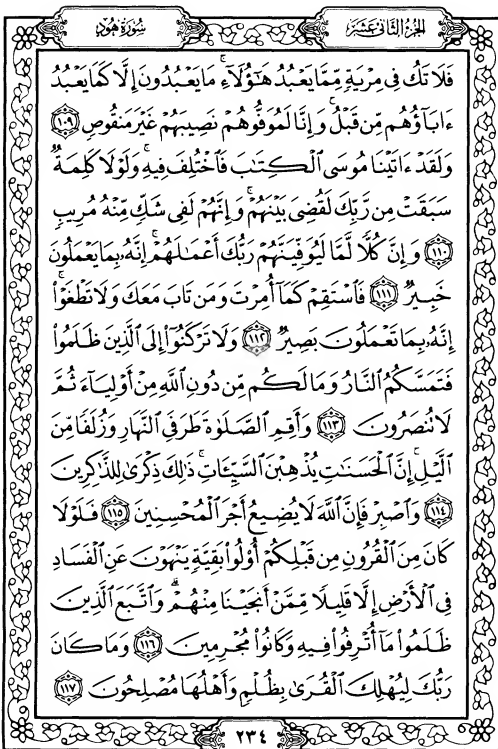 الجزء الثاني عشر
سورة هود
فَلَا تَكُ فِي مِرْيَةٍ مِّمَّا يَعْبُدُ هَٰٓؤُلَآءِ ۚ مَا يَعْبُدُونَ إِلَّا كَمَا يَعْبُدُ
ءَابَآؤُهُم مِّن قَبْلُ ۚ وَإِنَّا لَمُوَفُّوهُمْ نَصِيبَهُمْ غَيْرَ مَنقُوصٍ ١٠٩
وَلَقَدْ ءَاتَيْنَا مُوسَى ٱلْكِتَٰبَ فَٱخْتُلِفَ فِيهِ ۚ وَلَوْلَا كَلِمَةٌ
سَبَقَتْ مِن رَّبِّكَ لَقُضِىَ بَيْنَهُمْ ۚ وَإِنَّهُمْ لَفِى شَكٍّ مِّنْهُ مُرِيبٍ
١١٠ وَإِنَّ كُلًّا لَّمَّا لَيُوَفِّيَنَّهُمْ رَبُّكَ أَعْمَٰلَهُمْ ۚ إِنَّهُۥ بِمَا يَعْمَلُونَ
خَبِيرٌ ١١١ فَٱسْتَقِمْ كَمَآ أُمِرْتَ وَمَن تَابَ مَعَكَ وَلَا تَطْغَوْا۟ ۚ
إِنَّهُۥ بِمَا تَعْمَلُونَ بَصِيرٌ ١١٢ وَلَا تَرْكَنُوٓا۟ إِلَى ٱلَّذِينَ ظَلَمُوا۟
فَتَمَسَّكُمُ ٱلنَّارُ وَمَا لَكُم مِّن دُونِ ٱللَّهِ مِنْ أَوْلِيَآءَ ثُمَّ
لَا تُنصَرُونَ ١١٣ وَأَقِمِ ٱلصَّلَوٰةَ طَرَفَىِ ٱلنَّهَارِ وَزُلَفًا مِّنَ
ٱلَّيْلِ ۚ إِنَّ ٱلْحَسَنَٰتِ يُذْهِبْنَ ٱلسَّيِّـَٔاتِ ۚ ذَٰلِكَ ذِكْرَىٰ لِلذَّٰكِرِينَ
١١٤ وَٱصْبِرْ فَإِنَّ ٱللَّهَ لَا يُضِيعُ أَجْرَ ٱلْمُحْسِنِينَ ١١٥ فَلَوْلَا
كَانَ مِنَ ٱلْقُرُونِ مِن قَبْلِكُمْ أُو۟لُوا۟ بَقِيَّةٍ يَنْهَوْنَ عَنِ ٱلْفَسَادِ
فِى ٱلْأَرْضِ إِلَّا قَلِيلًا مِّمَّنْ أَنجَيْنَا مِنْهُمْ ۗ وَٱتَّبَعَ ٱلَّذِينَ
ظَلَمُوا۟ مَآ أُتْرِفُوا۟ فِيهِ وَكَانُوا۟ مُجْرِمِينَ ١١٦ وَمَا كَانَ
رَبُّكَ لِيُهْلِكَ ٱلْقُرَىٰ بِظُلْمٍ وَأَهْلُهَا مُصْلِحُونَ ١١٧
٢٣٤